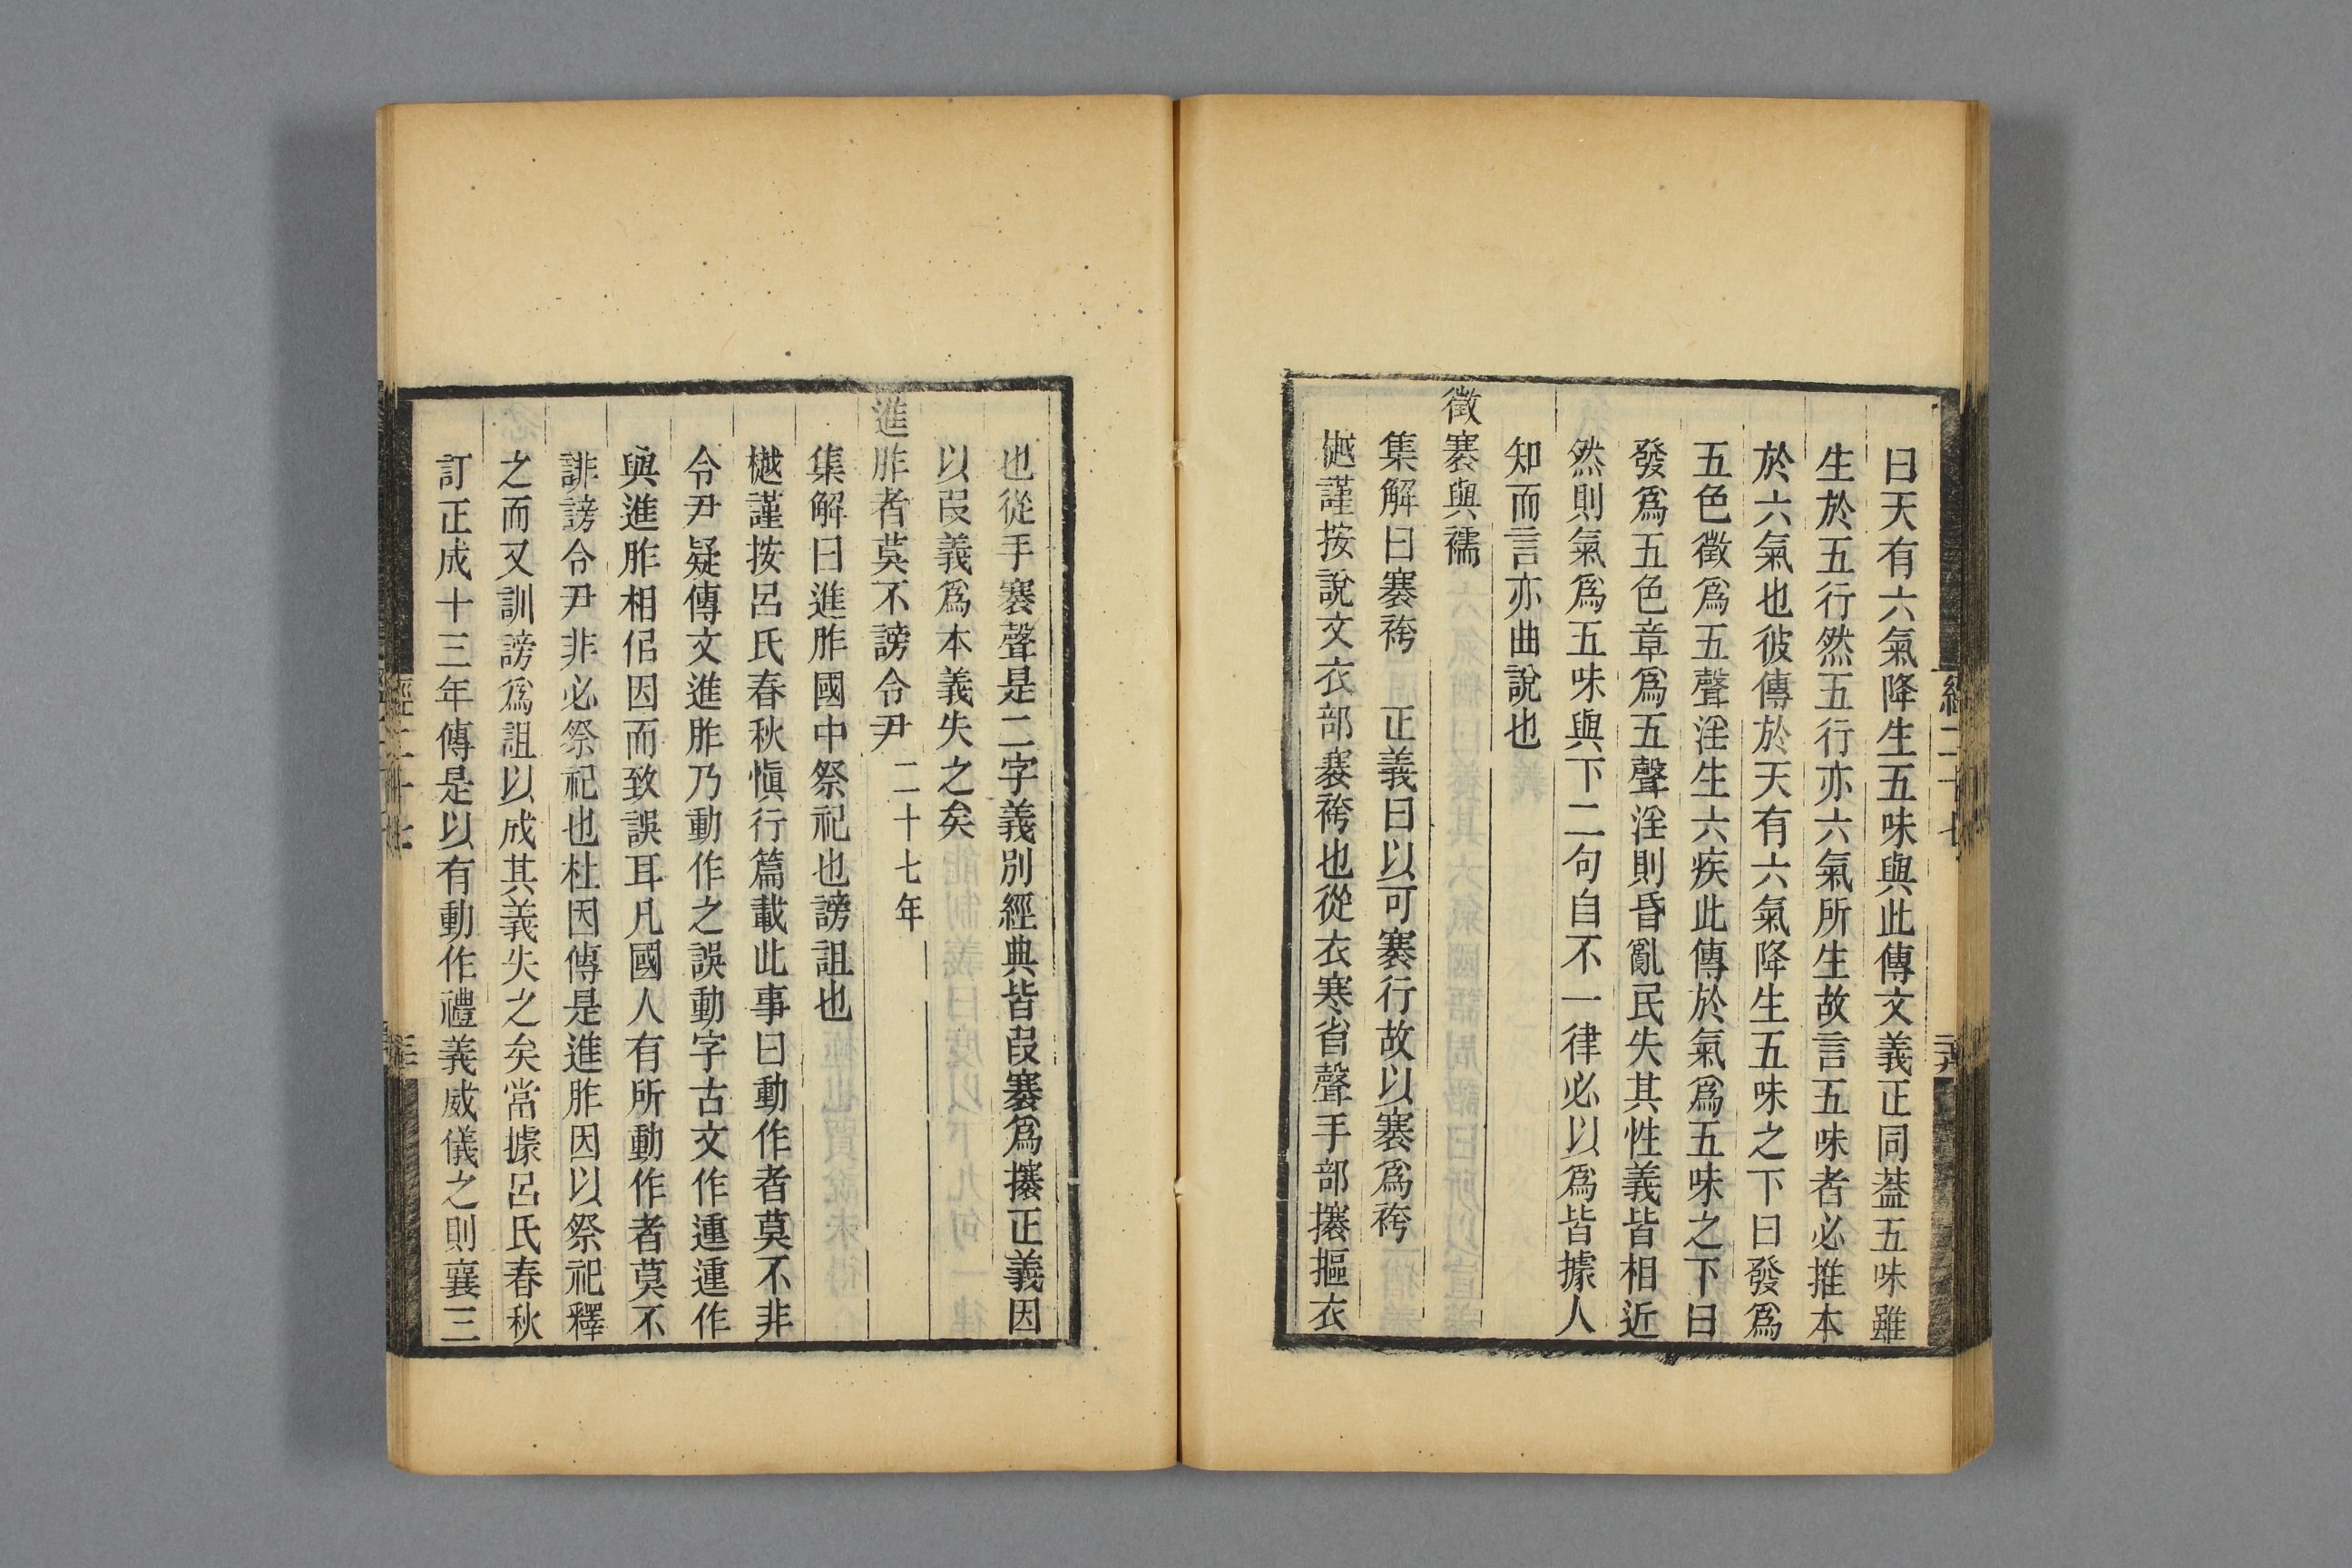 曰天有六氣降生五味與此傳文義正同葢五味雖
生於五行然五行亦六氣所生故言五味者必推本
於六氣也彼傳於天有六氣降生五味之下曰發爲
五色徵爲五聲淫生六疾此傳於氣爲五味之下曰
發爲五色章爲五聲淫則昏亂民失其性義皆相近
然則氣爲五味與下二句自不一律必以爲皆據人
知而言亦曲說也
徵褰與襦
集解曰褰袴 正義曰以可褰行故以褰爲袴
樾謹按說文衣部褰袴也從衣寒省聲手部攐摳衣
也從手褰聲是二字義別經典皆叚褰爲攐正義因
以叚義爲本義失之矣
進胙者莫不謗令尹 二十七年
集解曰進胙國中祭祀也謗詛也
樾謹按呂氏春秋愼行篇載此事曰動作者莫不非
令尹疑傳文進胙乃動作之誤動字古文作運運作
與進胙相佀因而致誤耳凡國人有所動作者莫不
誹謗令尹非必祭祀也杜因傳是進胙因以祭祀釋
之而又訓謗爲詛以成其義失之矣當據呂氏春秋
訂正成十三年傳是以有動作禮義威儀之則襄三
經二十七